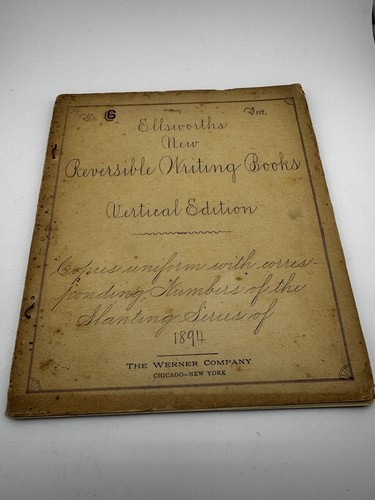 No. 6 Vert.
Ellsworths
New
Reversible Writing Books
Vertical Edition
Copies uniform with corres-
ponding Numbers of the
Slanting Series of
1894
THE WERNER COMPANY
CHICAGO—NEW YORK